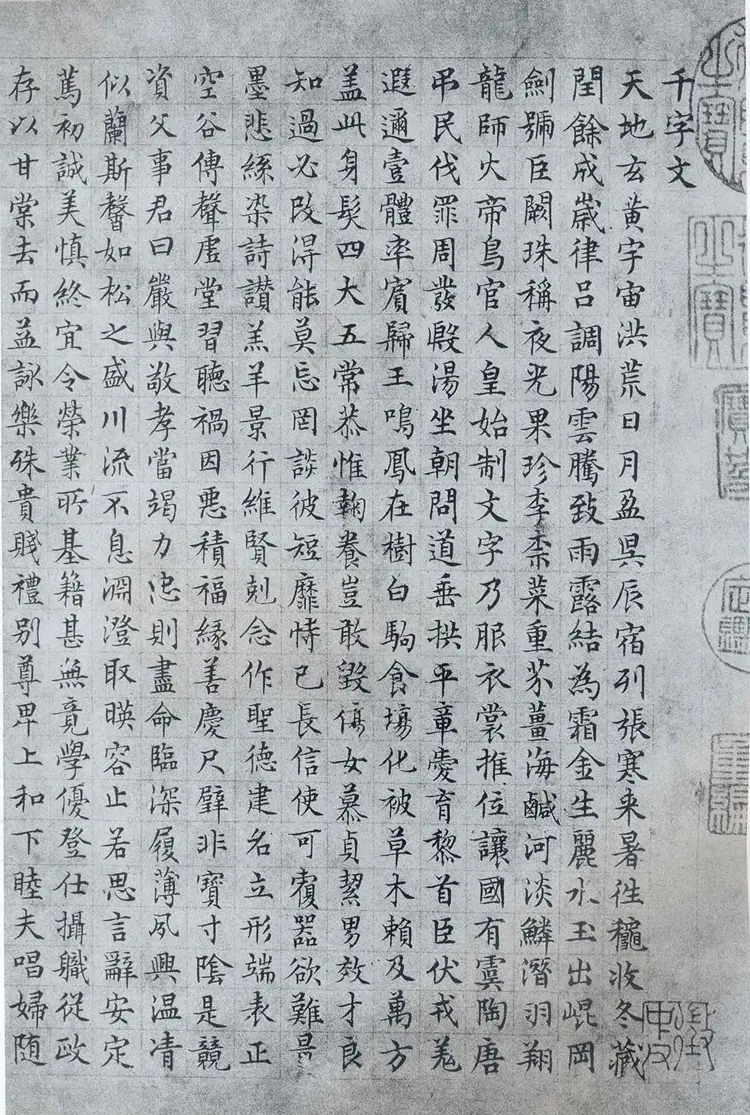 千字文
天地玄黃宇宙洪荒日月盈昃辰宿列張寒来暑往穐收冬藏
閏餘成歲律吕調陽雲騰致雨露結為霜金生麗水玉出崐岡
劍號巨闕珠稱夜光果珍李柰菜重芥薑海鹹河淡鱗潛羽翔
龍師火帝鳥官人皇始制文字乃服衣裳推位讓國有虞陶唐
弔民伐罪周發殷湯坐朝問道垂拱平章愛育黎首臣伏戎羌
遐邇壹體率賓歸王鳴鳳在樹白駒食場化被草木賴及萬方
盖此身髮四大五常恭惟鞠養豈敢毀傷女慕貞絜男效才良
知過必改得能莫忘罔談彼短靡恃己長信使可覆器欲難量
墨悲絲染詩讚羔羊景行維賢剋念作聖德建名立形端表正
空谷傳聲虛堂習聽禍因惡積福緣善慶尺璧非寶寸陰是競
資父事君曰嚴與敬孝當竭力忠則盡命臨深履薄夙興温凊
似蘭斯馨如松之盛川流不息淵澄取暎容止若思言辭安定
篤初誠美慎終宜令榮業所基籍甚無竟學優登仕攝職從政
存以甘棠去而益詠樂殊貴賤禮別尊卑上和下睦夫唱婦随